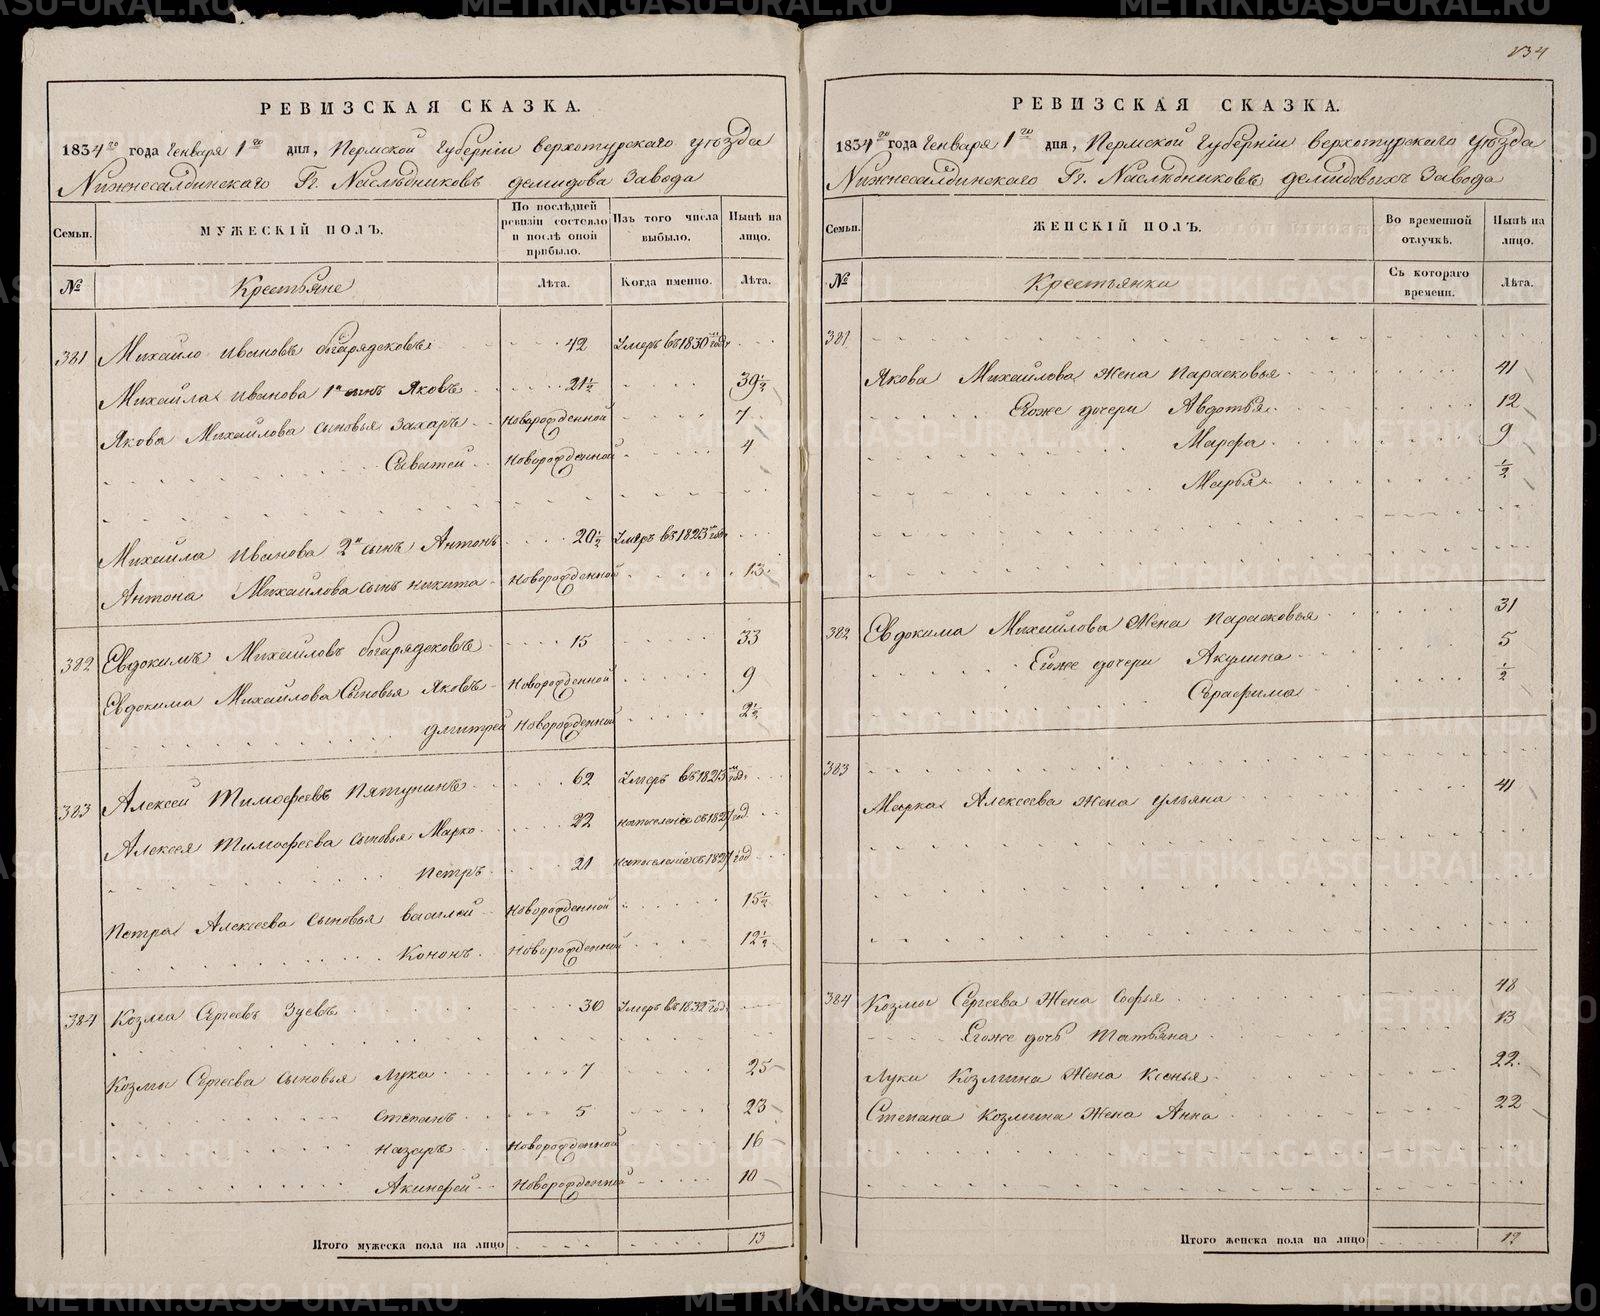 134
РЕВИЗСКАЯ СКАЗКА.
1834го года Генваря 1го дня, Пермской Губернiи Верхотурского уѣзда
Нижнесалдинского Гг. Наслѣдниковъ Демидова Завода
Семьи.
МУЖЕСКIЙ ПОЛЪ.
По послѣдней ревизiи состояло и послѣ оной прибыло.
Изъ того числа выбыло.
Нынѣ на лицо.
№
Крестьяне
Лѣта.
Когда именно.
Лѣта.
381 Михайло Ивановъ 42 Умеръ въ 1830м годе
Михайла Иванова 1й сынъ Яковъ 21½ 39½
Якова Михайлова сыновья Захаръ Новорожденной 7
Саватей Новорожденной 4
Михайла Иванова 2й сынъ Антонъ 20½ Умеръ въ 1825м годе
Антона Михайлова сынъ Никита Новорожденной 13
382 Евдокимъ Михайловъ 15 33
Евдокима Михайлова Сыновья Яковъ Новорожденной 9
Дмитрей Новорожденной 2½
383 Алексей Тимофеевъ Пятунинъ 62 Умеръ въ 1825м годе
Алексея Тимофеева сыновья Марко 22 на поселенiе въ 1827 год
Петръ 21 на поселенiе въ 1827 год
Петра Алексеева сыновья Василей Новорожденной 15½
Кононъ Новорожденной 12½
384 Козма Сергеевъ Зуевъ 30 Умеръ въ 1832м годе
Козмы Сергеева сыновья Лука 7 25
Степанъ 5 23
Назаръ Новорожденной 16
Акинфей Новорожденной 10
Итого мужеска пола на лицо 13
РЕВИЗСКАЯ СКАЗКА.
1834го года Генваря 1го дня, Пермской Губернiи Верхотурского уѣзда
Нижнесалдинского Гг. Наслѣдниковъ Демидовыхъ Завода
Семьи.
ЖЕНСКIЙ ПОЛЪ.
Во временной отлучкѣ.
Нынѣ на лицо.
№
Крестьянки
Съ котораго времени.
Лѣта.
381
Якова Михайлова Жена Парасковья 41
Егоже дочери Авдотья 12
Марфа 9
Марья ½
382 Евдокима Михайлова Жена Парасковья 31
Егоже дочери Акулина 5
Сѣрафима ½
383
Марка Алексеева Жена Ульяна 41
384 Козмы Сергеева Жена Софья 48
Егоже дочь Татьяна 13
Луки Козмина Жена Ксенья 22
Степана Козмина Жена Анна 22
Итого женска пола на лицо 12
METRIKI.GASO-URAL.RU